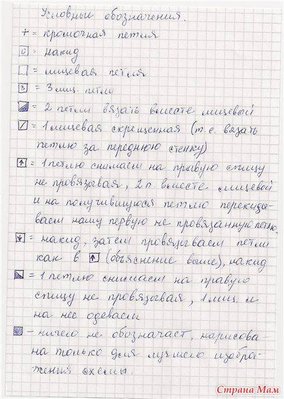 Условные обозначения.
+ = кромочная петля
= накид
= лицевая петля
3 = 3 лиц. петли
= 2 петли вязать вместе лицевой
= 1 лицевая скрещенная (т.е. вязать
петлю за переднюю стенку)
= 1 петлю снимаем на правую спицу
не провязывая, 2 п. вместе лицевой
и на получившуюся петлю перекиды-
ваем нашу первую не провязанную петлю.
= накид, затем провязываем петли
как в (объяснение выше), накид
= 1 петлю снимаем на правую
спицу не провязывая, 1 лиц. и
на нее одеваем
- ничего не обозначает, нарисова-
на только для лучшего изобра-
жения схемы.
Страна Мам